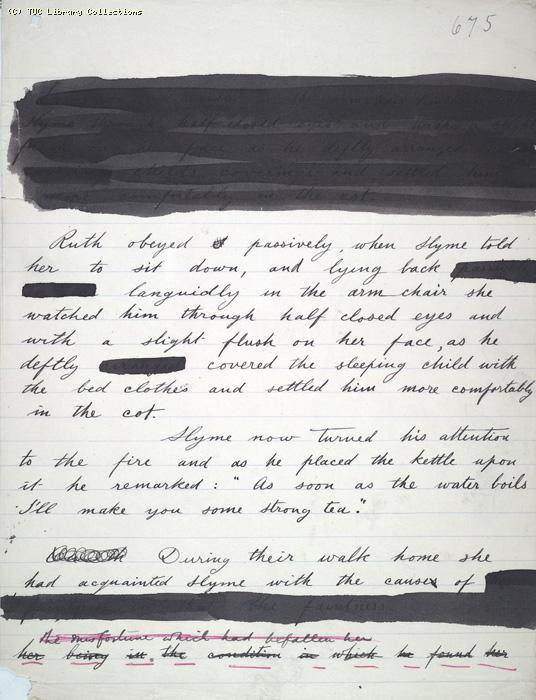 (C) TUC Library Collections
675
half closed eyes and
face as he deftly arranged
child's coverings and settled him
comfortably in the cot.
Ruth obeyed passively, when Slyme told
her to sit down, and lying back
languidly in the arm chair she
watched him through half closed eyes and
with a slight flush on her face, as he
deftly covered the sleeping child with
the bed clothes and settled him more comfortably
in the cot.
Slyme now turned his attention
to the fire and as he placed the kettle upon
it he remarked: "As soon as the water boils
I'll make you some strong tea."
During their walk home she
had acquainted Slyme with the cause of
the faintness
the misfortune which had befallen her
her being in the condition in which he found her